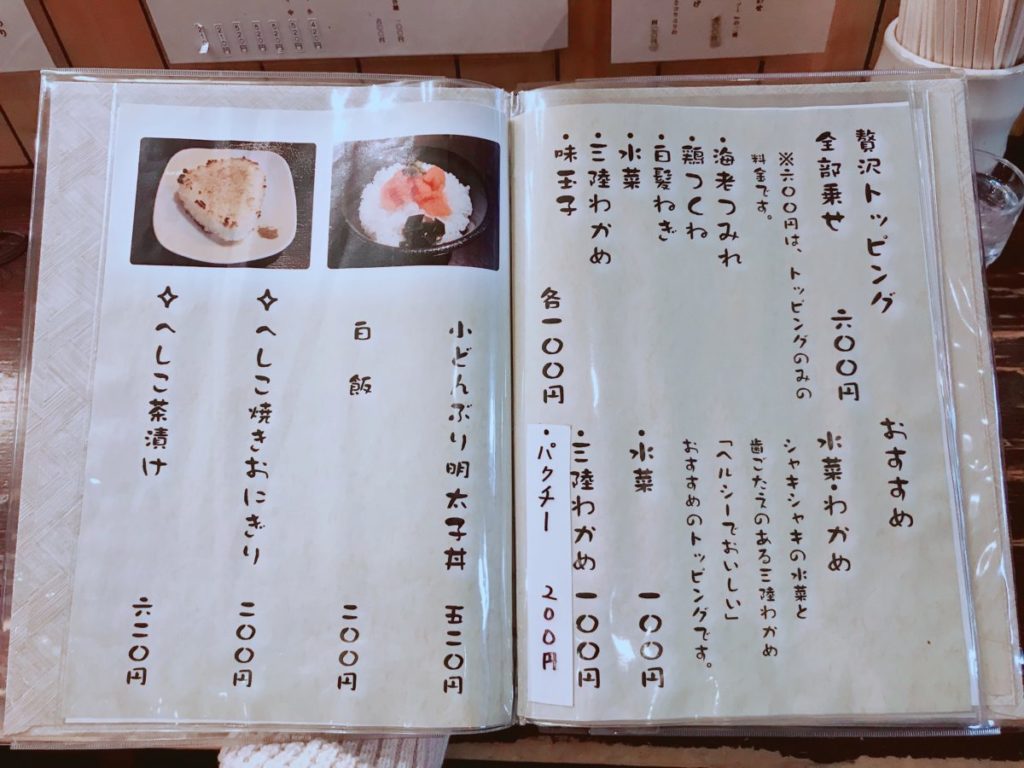 贅沢トッピング
全部乗せ 六〇〇円
※六〇〇円は、トッピングのみの
料金です。
・海老つみれ
・鶏つくね
・白髪ねぎ
・水菜
・三陸わかめ
・味玉子
各一〇〇円
おすすめ
水菜・わかめ
シャキシャキの水菜と
歯ごたえのある三陸わかめ
「ヘルシーでおいしい」
おすすめのトッピングです。
・水菜 一〇〇円
・三陸わかめ 一〇〇円
・パクチー 200円
小どんぶり明太子丼 五二〇円
白飯 二〇〇円
✧へしこ焼きおにぎり 二〇〇円
✧へしこ茶漬け 六二〇円